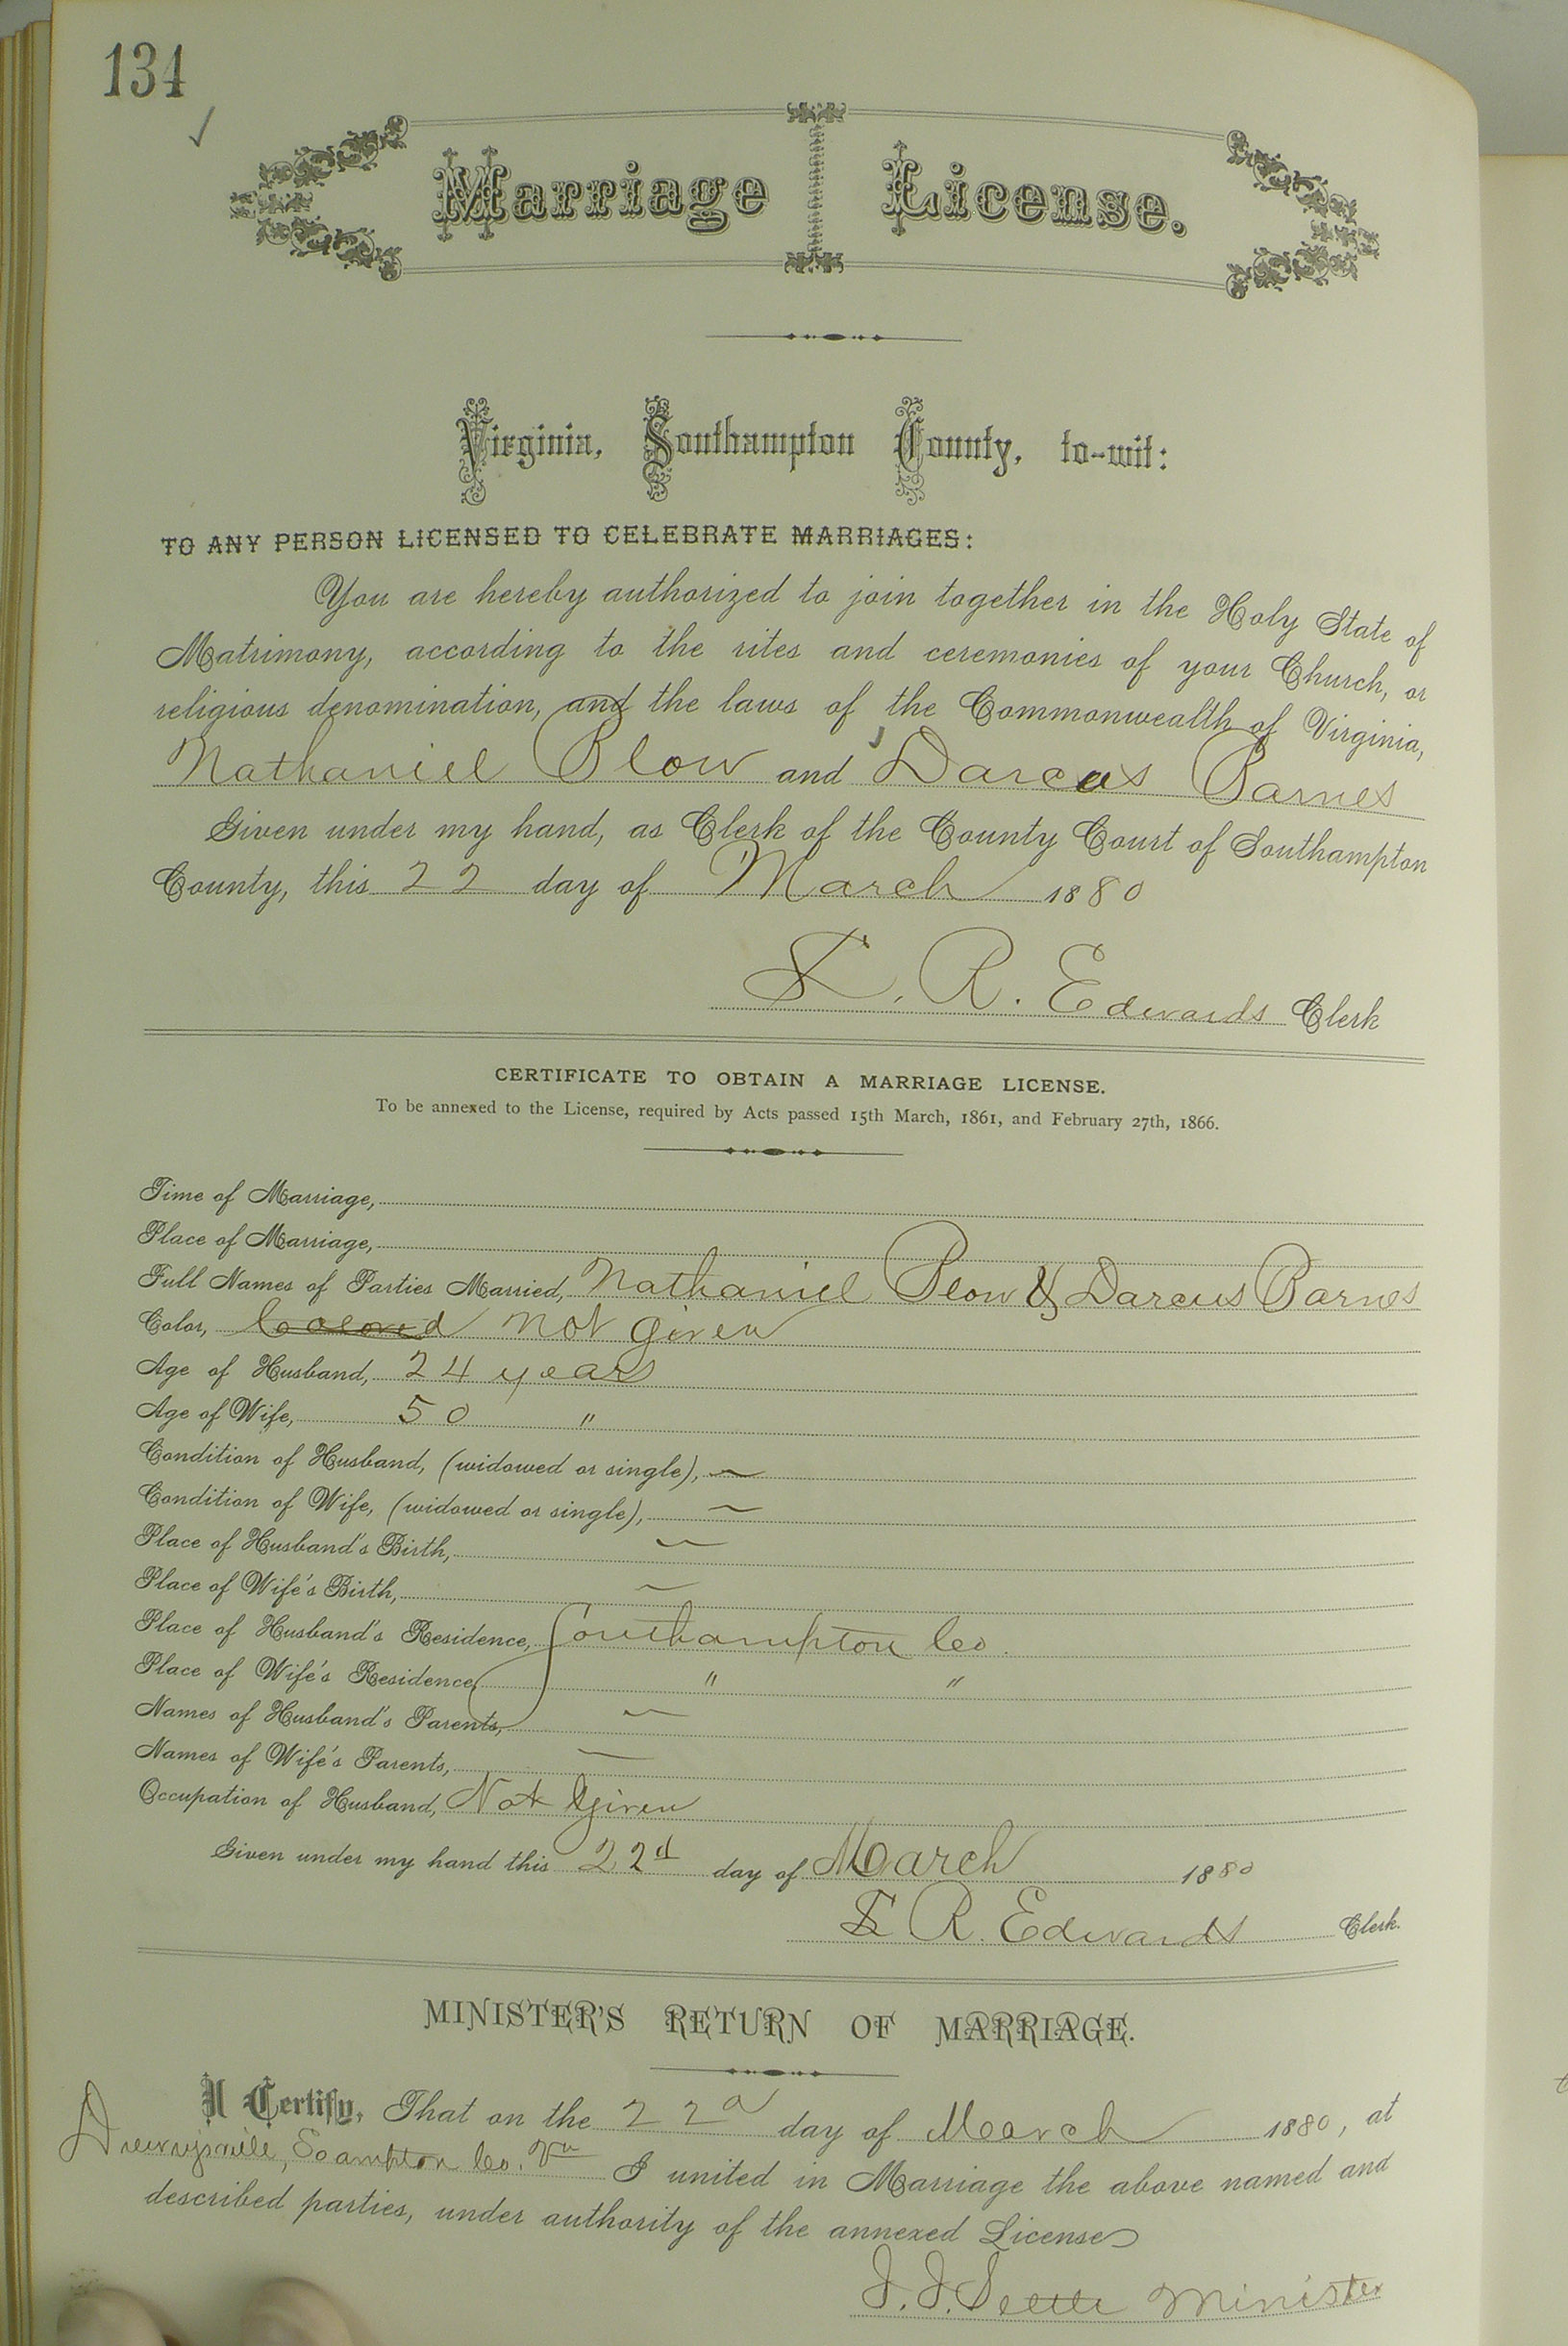 134
Marriage License.
Virginia, Southampton County, to-wit:
TO ANY PERSON LICENSED TO CELEBRATE MARRIAGES:
You are hereby authorized to join together in the Holy State of
Matrimony, according to the rites and ceremonies of your Church, or
religious denomination, and the laws of the Commonwealth of Virginia,
Nathaniel Blow and Darcus Barnes
Given under my hand, as Clerk of the County Court of Southampton
County, this 22 day of March 1880
L. R. Edwards Clerk
CERTIFICATE TO OBTAIN A MARRIAGE LICENSE.
To be annexed to the License, required by Acts passed 15th March, 1861, and February 27th, 1866.
Time of Marriage,
Place of Marriage,
Full Names of Parties Married, Nathaniel Blow & Darcus Barnes
Color, Colored Not Given
Age of Husband, 24 years
Age of Wife, 50 "
Condition of Husband, (widowed or single), —
Condition of Wife, (widowed or single), —
Place of Husband's Birth, —
Place of Wife's Birth, —
Place of Husband's Residence, Southampton Co.
Place of Wife's Residence, " "
Names of Husband's Parents, —
Names of Wife's Parents, —
Occupation of Husband, Not Given
Given under my hand this 22d day of March 1880
L R. Edwards Clerk.
MINISTER'S RETURN OF MARRIAGE.
I Certify, That on the 22d day of March 1880, at
Drewrysville, So ampton Co. Va I united in Marriage the above named and
described parties, under authority of the annexed License
J. J. Minister